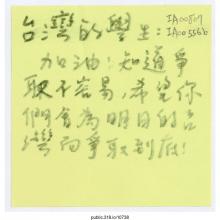 台灣的學生:
IA00807
IA005566
加油!知道爭
取不容易,希望你
們會為明日的台
灣而爭取到底!
public.318.io/10738